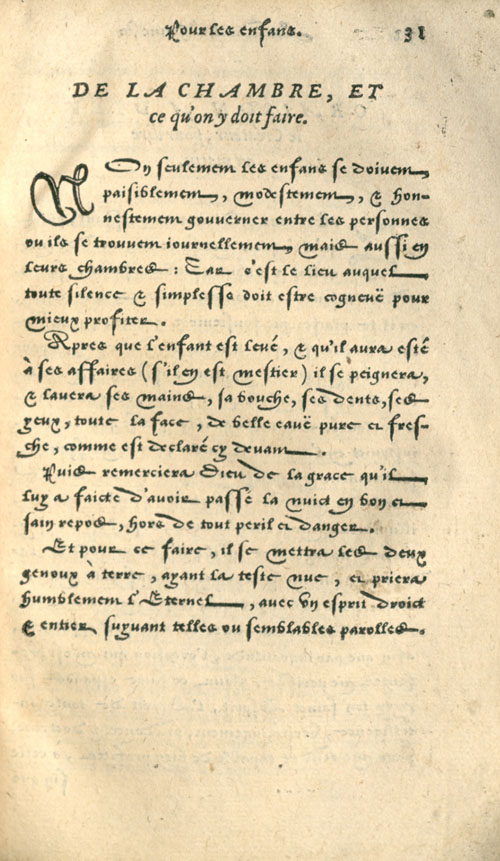 Pour les enfans. 31
DE LA CHAMBRE, ET
ce qu'on y doit faire.
NOn seulement les enfans se doivent
paisiblement, modestement, & hon-
nestement gouverner entre les personnes
ou ils se trouvent iournellement, mais aussi en
leurs chambres: Car c'est le lieu auquel
toute silence & simplesse doit estre cogneuë pour
mieux profiter.
Apres que l'enfant est levé, & qu'il aura esté
à ses affaires (s'il en est mestier) il se peignera,
& lavera ses mains, sa bouche, ses dents, ses
yeux, toute la face, de belle eauë pure et fres-
che, comme est declaré cy devant.
Puis remerciera Dieu de la grace qu'il
luy a faicte d'avoir passé la nuict en bon et
sain repos, hors de tout peril et danger.
Et pour ce faire, il se mettra les deux
genoux à terre, ayant la teste nue, et priera
humblement l'Eternel, avec vn esprit droict
& entier, suyvant telles ou semblables parolles.